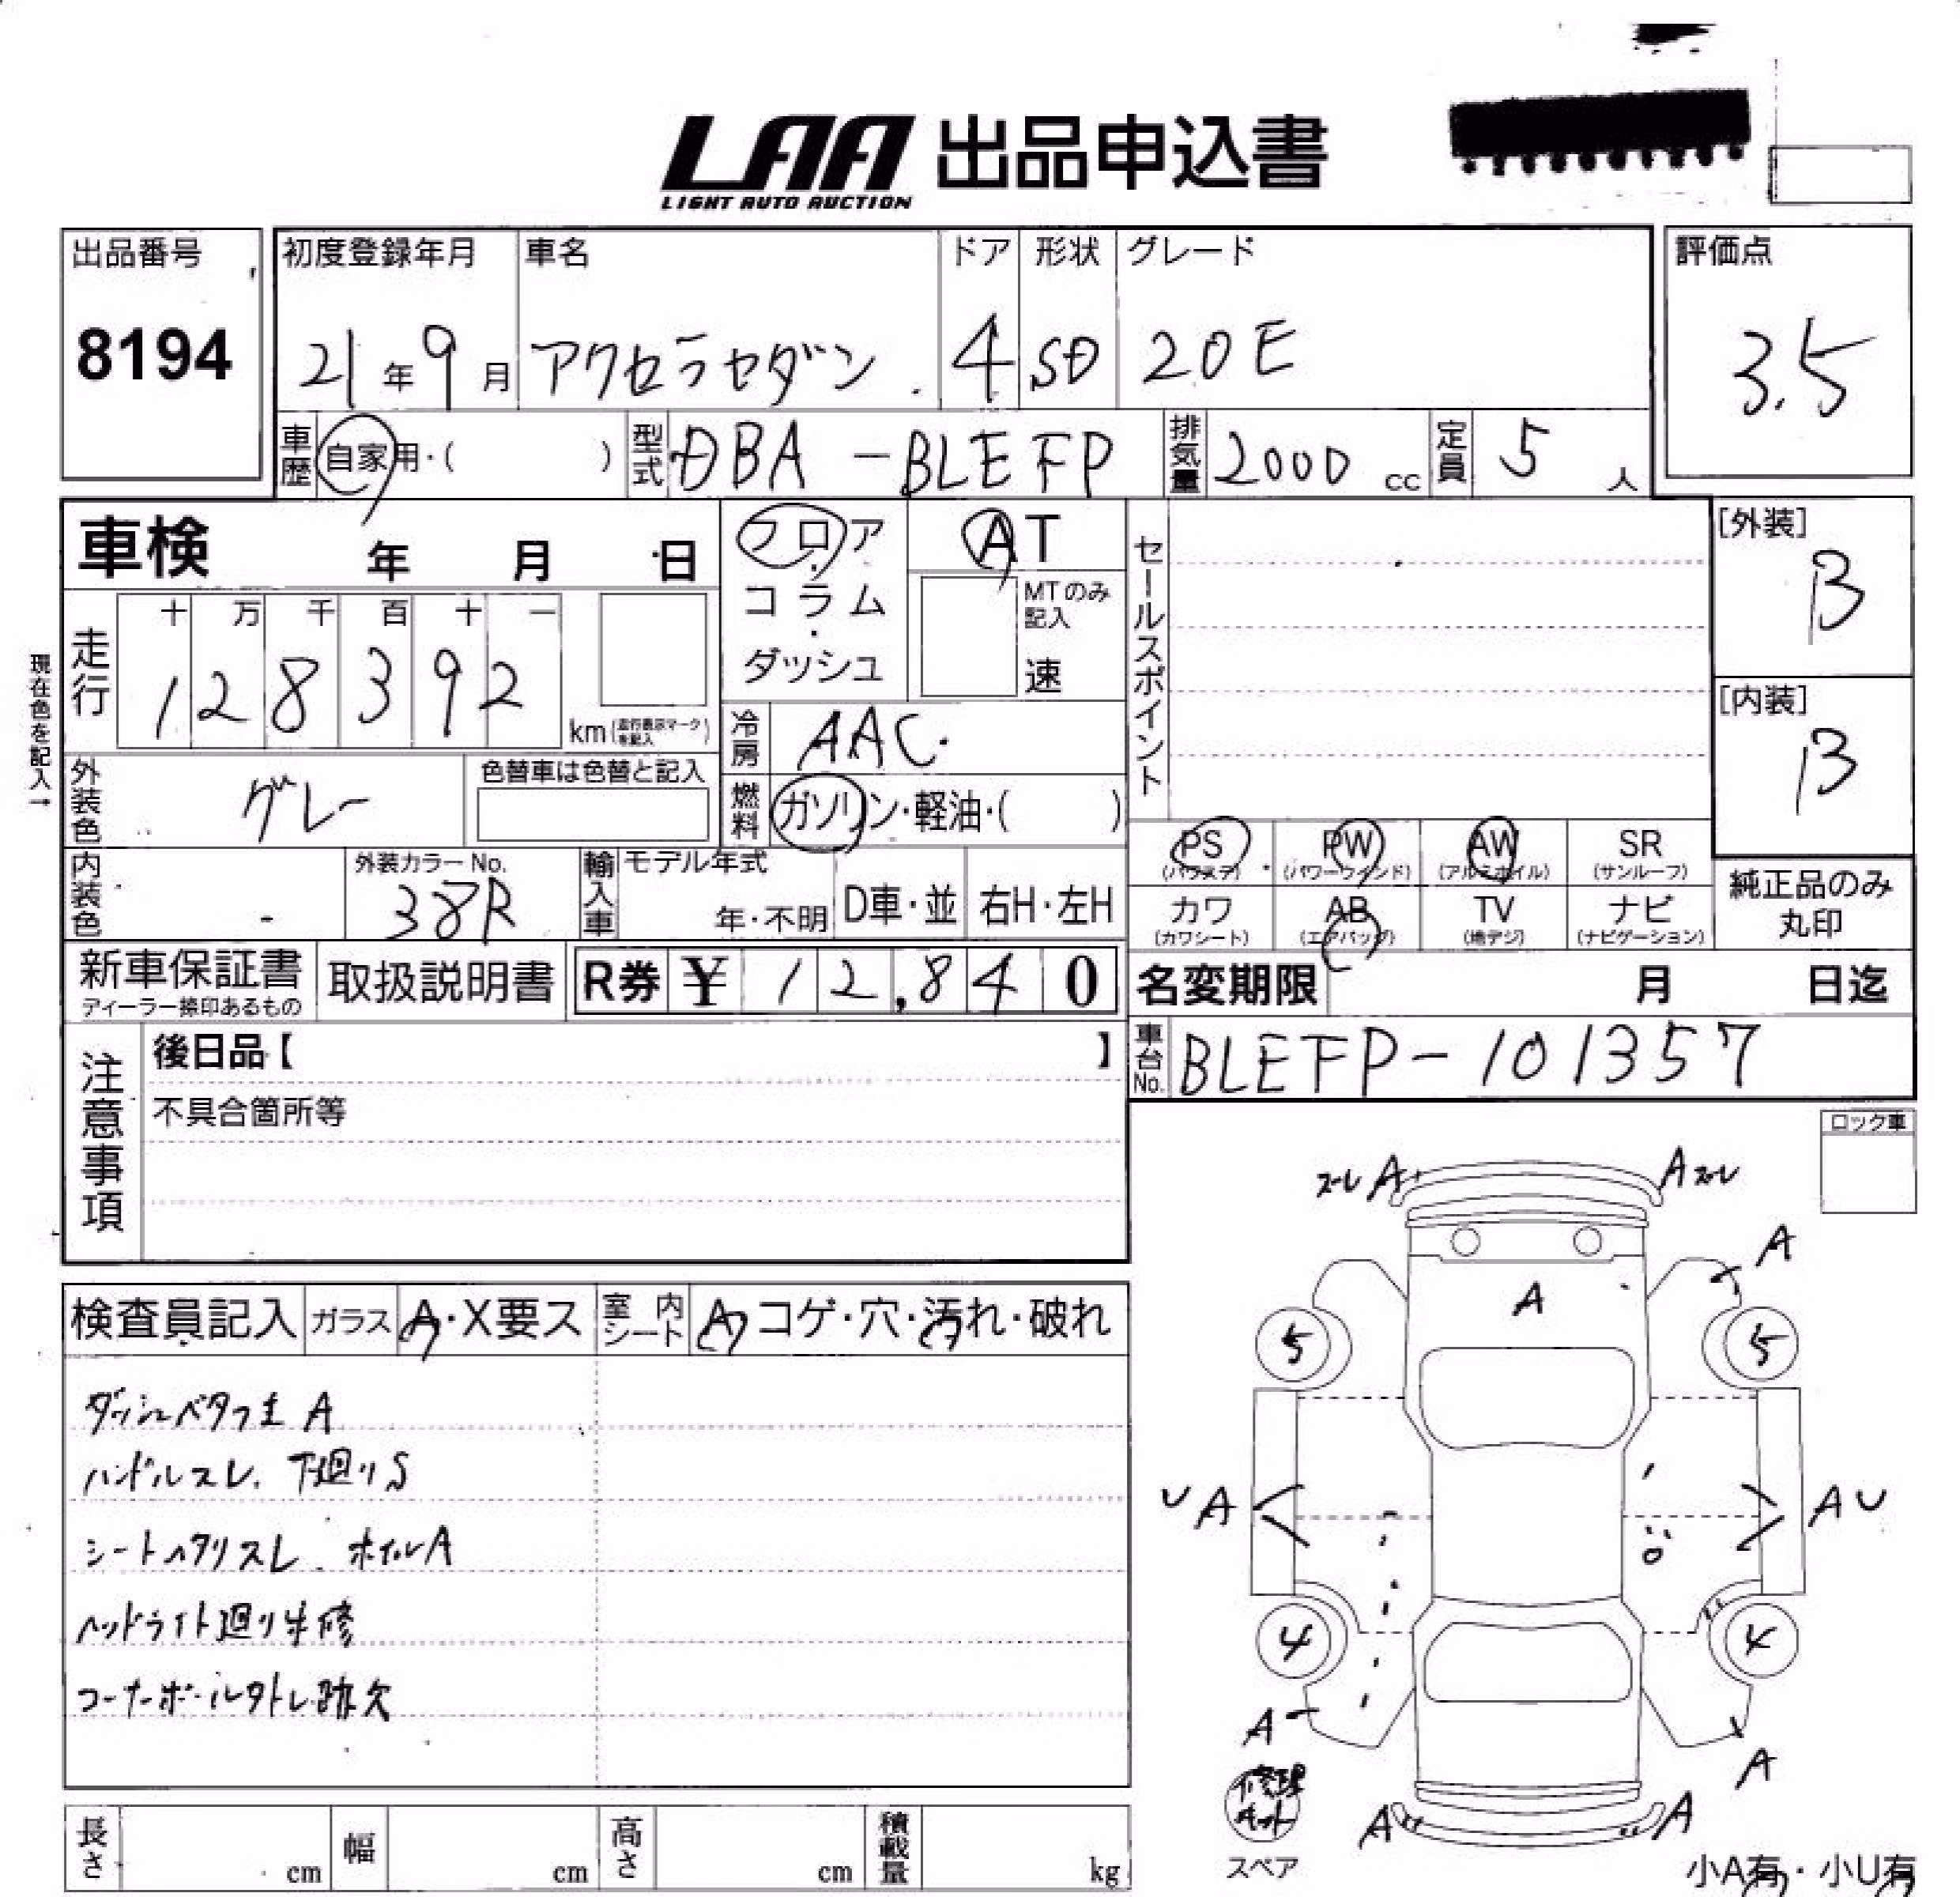 LAA 出品申込書
LIGHT AUTO AUCTION
出品番号
8194
初度登録年月
21年9月
車名
アクセラセダン
ドア
4
形状
SD
グレード
20E
評価点
3.5
車歴 自家用・( )
型式 DBA-BLEFP
排気量 2000 cc
定員 5 人
車検 年 月 日
フロア・コラム・ダッシュ
AT
MTのみ記入
速
セールスポイント
[外装]
B
[内装]
B
現在色を記入→
走行
十 万 千 百 十 一
1 2 8 3 9 2
km (走行表示マークを記入)
冷房 AAC
燃料 ガソリン・軽油・( )
外装色 グレー
色替車は色替と記入
内装色 -
外装カラーNo.
38R
輸入車
モデル年式
年・不明
D車・並
右H・左H
PS (パワステ)
PW (パワーウィンド)
AW (アルミホイル)
SR (サンルーフ)
カワ (カワシート)
AB (エアバッグ)
TV (地デジ)
ナビ (ナビゲーション)
純正品のみ丸印
新車保証書
ディーラー捺印あるもの
取扱説明書
R券 ¥ 12,840
名変期限 月 日迄
車台No. BLEFP-101357
注意事項
後日品【 】
不具合箇所等
ロック車
検査員記入
ガラス A・X要ス
室内シート A・コゲ・穴・汚れ・破れ
A
ハンドルスレ、下廻りS
シートヘタリスレ ホイルA
ヘッドライト廻り
コーナーポール
スレA
Aスレ
A
A
5
5
UA
AU
4
4
A
A
修理キット
スペア
A
A
小A有・小U有
長さ cm
幅 cm
高さ cm
積載量 kg